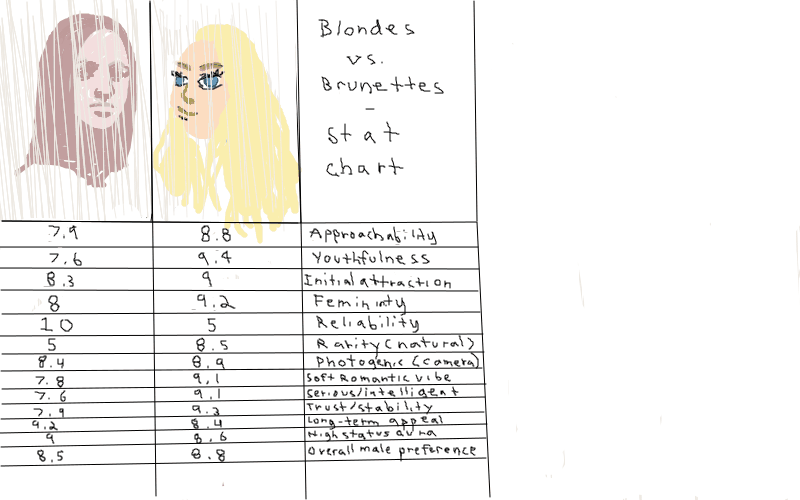 Blondes
vs.
Brunettes
-
Stat
chart
7.9 8.8 Approachability
7.6 9.4 Youthfulness
8.3 9 Initial attraction
8 9.2 Femininty
10 5 Reliability
5 8.5 Rarity (natural)
8.4 8.9 Photogenic (camera)
7.8 9.1 Soft Romantic vibe
7.6 9.1 Serious/intelligent
7.9 9.2 Trust/stability
9.2 8.4 Long-term appeal
9 8.6 High status aura
8.5 8.8 Overall male preference